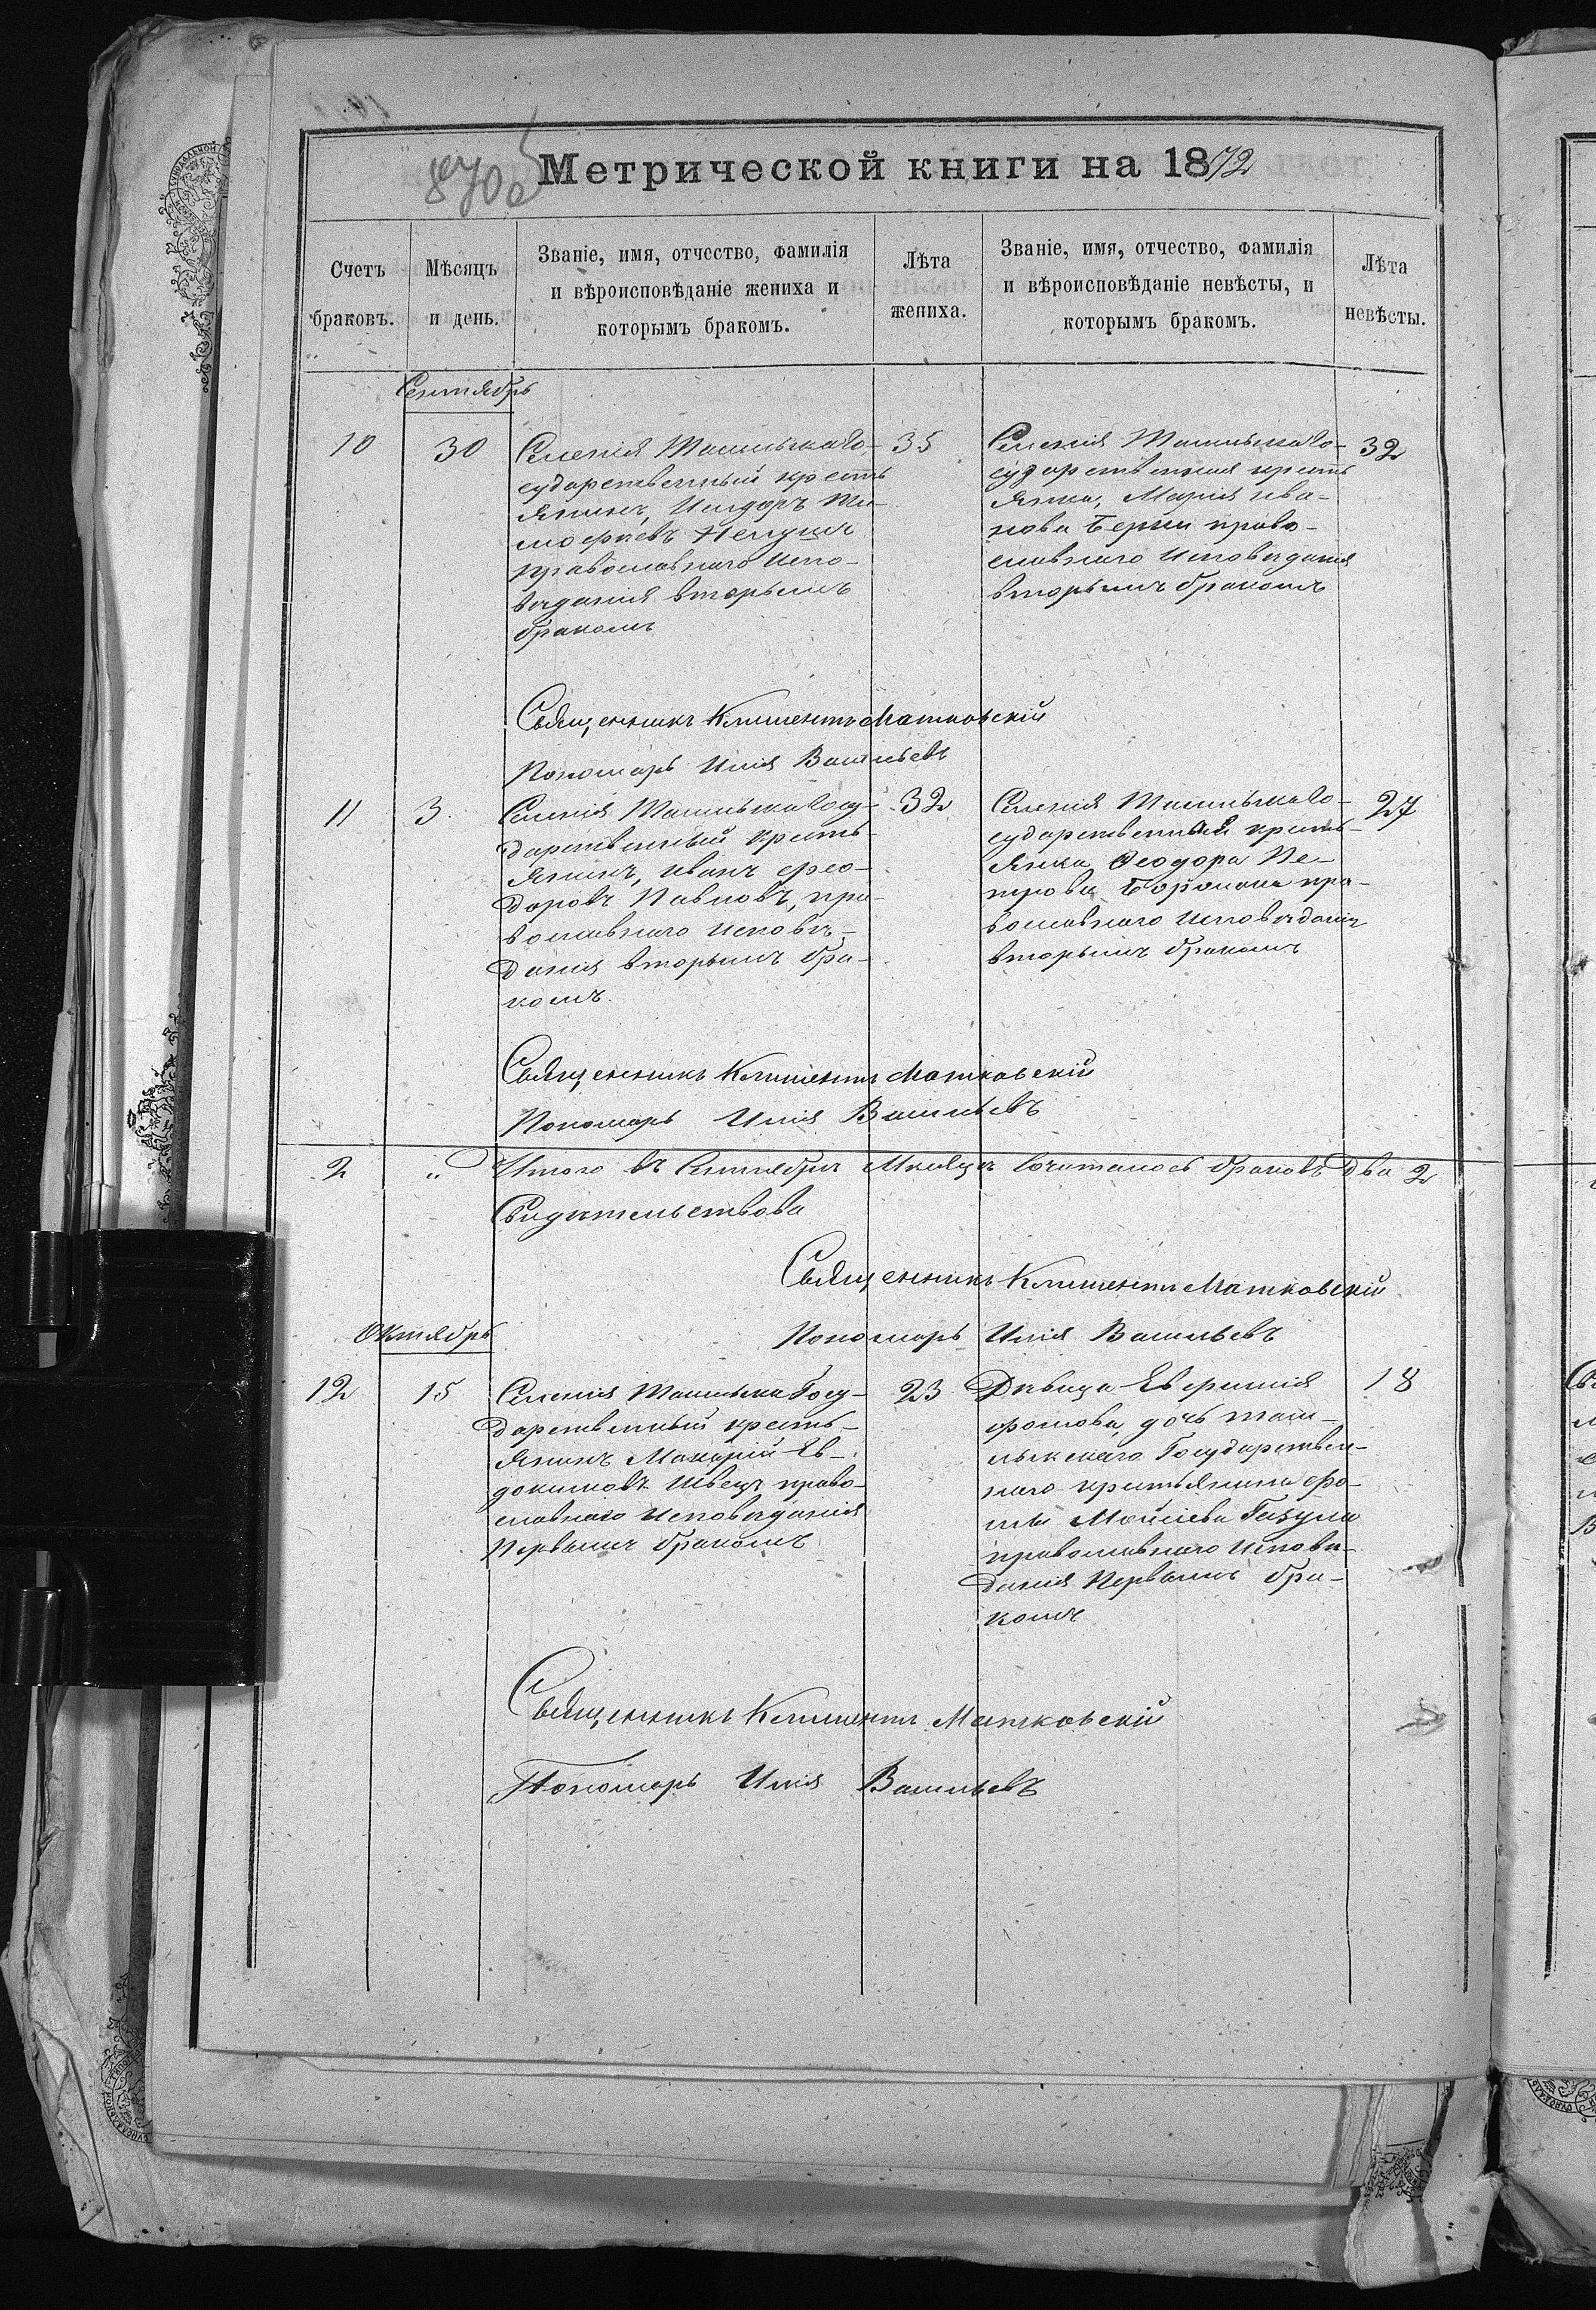 870 об
Метрической книги на 1872
Счетъ браковъ.
Мѣсяцъ и день.
Званіе, имя, отчество, фамилія
и вѣроисповѣданіе жениха и
которымъ бракомъ.
Лѣта жениха.
Званіе, имя, отчество, фамилія
и вѣроисповѣданіе невѣсты, и
которымъ бракомъ.
Лѣта невѣсты.
Сентябрь
10
30
Селенія Ташлыка Го-
сударственный кресть
янинъ, Исидоръ Ти-
мофеевъ
православнаго Испо-
вѣданія вторымъ
бракомъ
35
Селенія Ташлыка Го-
сударственная кресть
янка, Марія Ива-
нова право-
славнаго Исповѣданія
вторымъ бракомъ
32
Священникъ Климентъ Матковскій
Пономарь Илія Васильевъ
11
3.
Селенія Ташлыка Госу-
дарственный Кресть-
янинъ, Иванъ Фео-
доровъ Павловъ, пра-
вославнаго Исповѣ-
данія вторымъ бра-
комъ.
32
Селенія Ташлыка Го-
сударственный кресть-
янка Феодора Пе-
трова пра-
вославнаго Исповѣданія
вторымъ бракомъ
27
Священникъ Климентъ Матковскій
Пономарь Илія Васильевъ
2
"
Итого въ Сентябрѣ Мѣсяцѣ Сочиталось браковъ Два 2
Свидѣтельствова
Священникъ Климентъ Матковскій
Пономарь Илія Васильевъ
Октябрь
12
15
Селенія Ташлыка Госу-
дарственный кресть-
янинъ Макарій Ев-
докимовъ Швецъ право-
славнаго Исповѣданія
Первымъ бракомъ
23
Дѣвица Евфимія
Фомова, дочь Таш-
лыкскаго Государствен-
наго крестьянина Фо-
мы Моисіева
православнаго Исповѣ-
данія Первымъ бра-
комъ
18
Священникъ Климентъ Матковскій
Пономарь Илія Васильевъ